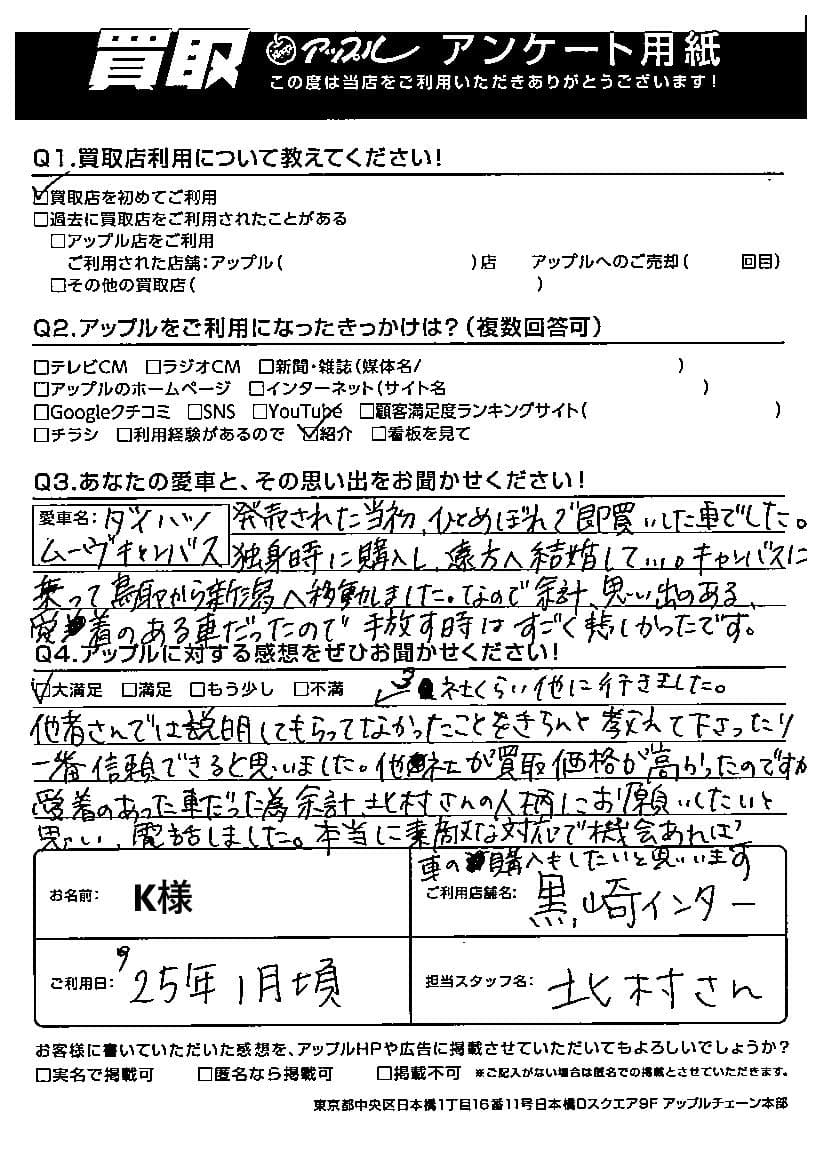 買取 アップル アンケート用紙
この度は当店をご利用いただきありがとうございます!
Q1.買取店利用について教えてください!
☑買取店を初めてご利用
□過去に買取店をご利用されたことがある
□アップル店をご利用
ご利用された店舗:アップル( )店 アップルへのご売却( 回目)
□その他の買取店( )
Q2.アップルをご利用になったきっかけは?(複数回答可)
□テレビCM □ラジオCM □新聞・雑誌(媒体名/ )
□アップルのホームページ □インターネット(サイト名 )
□Googleクチコミ □SNS □YouTube □顧客満足度ランキングサイト( )
□チラシ □利用経験があるので ☑紹介 □看板を見て
Q3.あなたの愛車と、その思い出をお聞かせください!
愛車名:ダイハツ 発売された当初、ひとめぼれで即買いした車でした。
ムーヴキャンバス 独身時に購入し、遠方へ結婚して…。キャンバスに
乗って鳥取から新潟へ移動しました。なので余計、思い出のある、
愛着のある車だったので手放す時はすごく悲しかったです。
Q4.アップルに対する感想をぜひお聞かせください!
☑大満足 □満足 □もう少し □不満 3社くらい他に行きました。
他者さんでは説明してもらってなかったことをきちんと教えて下さったり
一番信頼できると思いました。他社が買取価格が高かったのですが
愛着のあった車だった為余計、北村さんの人柄にお願いしたいと
思い、電話しました。本当に素敵な対応で機会あれば
車の購入もしたいと思います
お名前: K様
ご利用店舗名: 黒崎インター
ご利用日: '25年1月頃
担当スタッフ名: 北村さん
お客様に書いていただいた感想を、アップルHPや広告に掲載させていただいてもよろしいでしょうか?
□実名で掲載可 □匿名なら掲載可 □掲載不可 ※ご記入がない場合は匿名での掲載とさせていただきます。
東京都中央区日本橋1丁目16番11号日本橋Dスクエア9F アップルチェーン本部